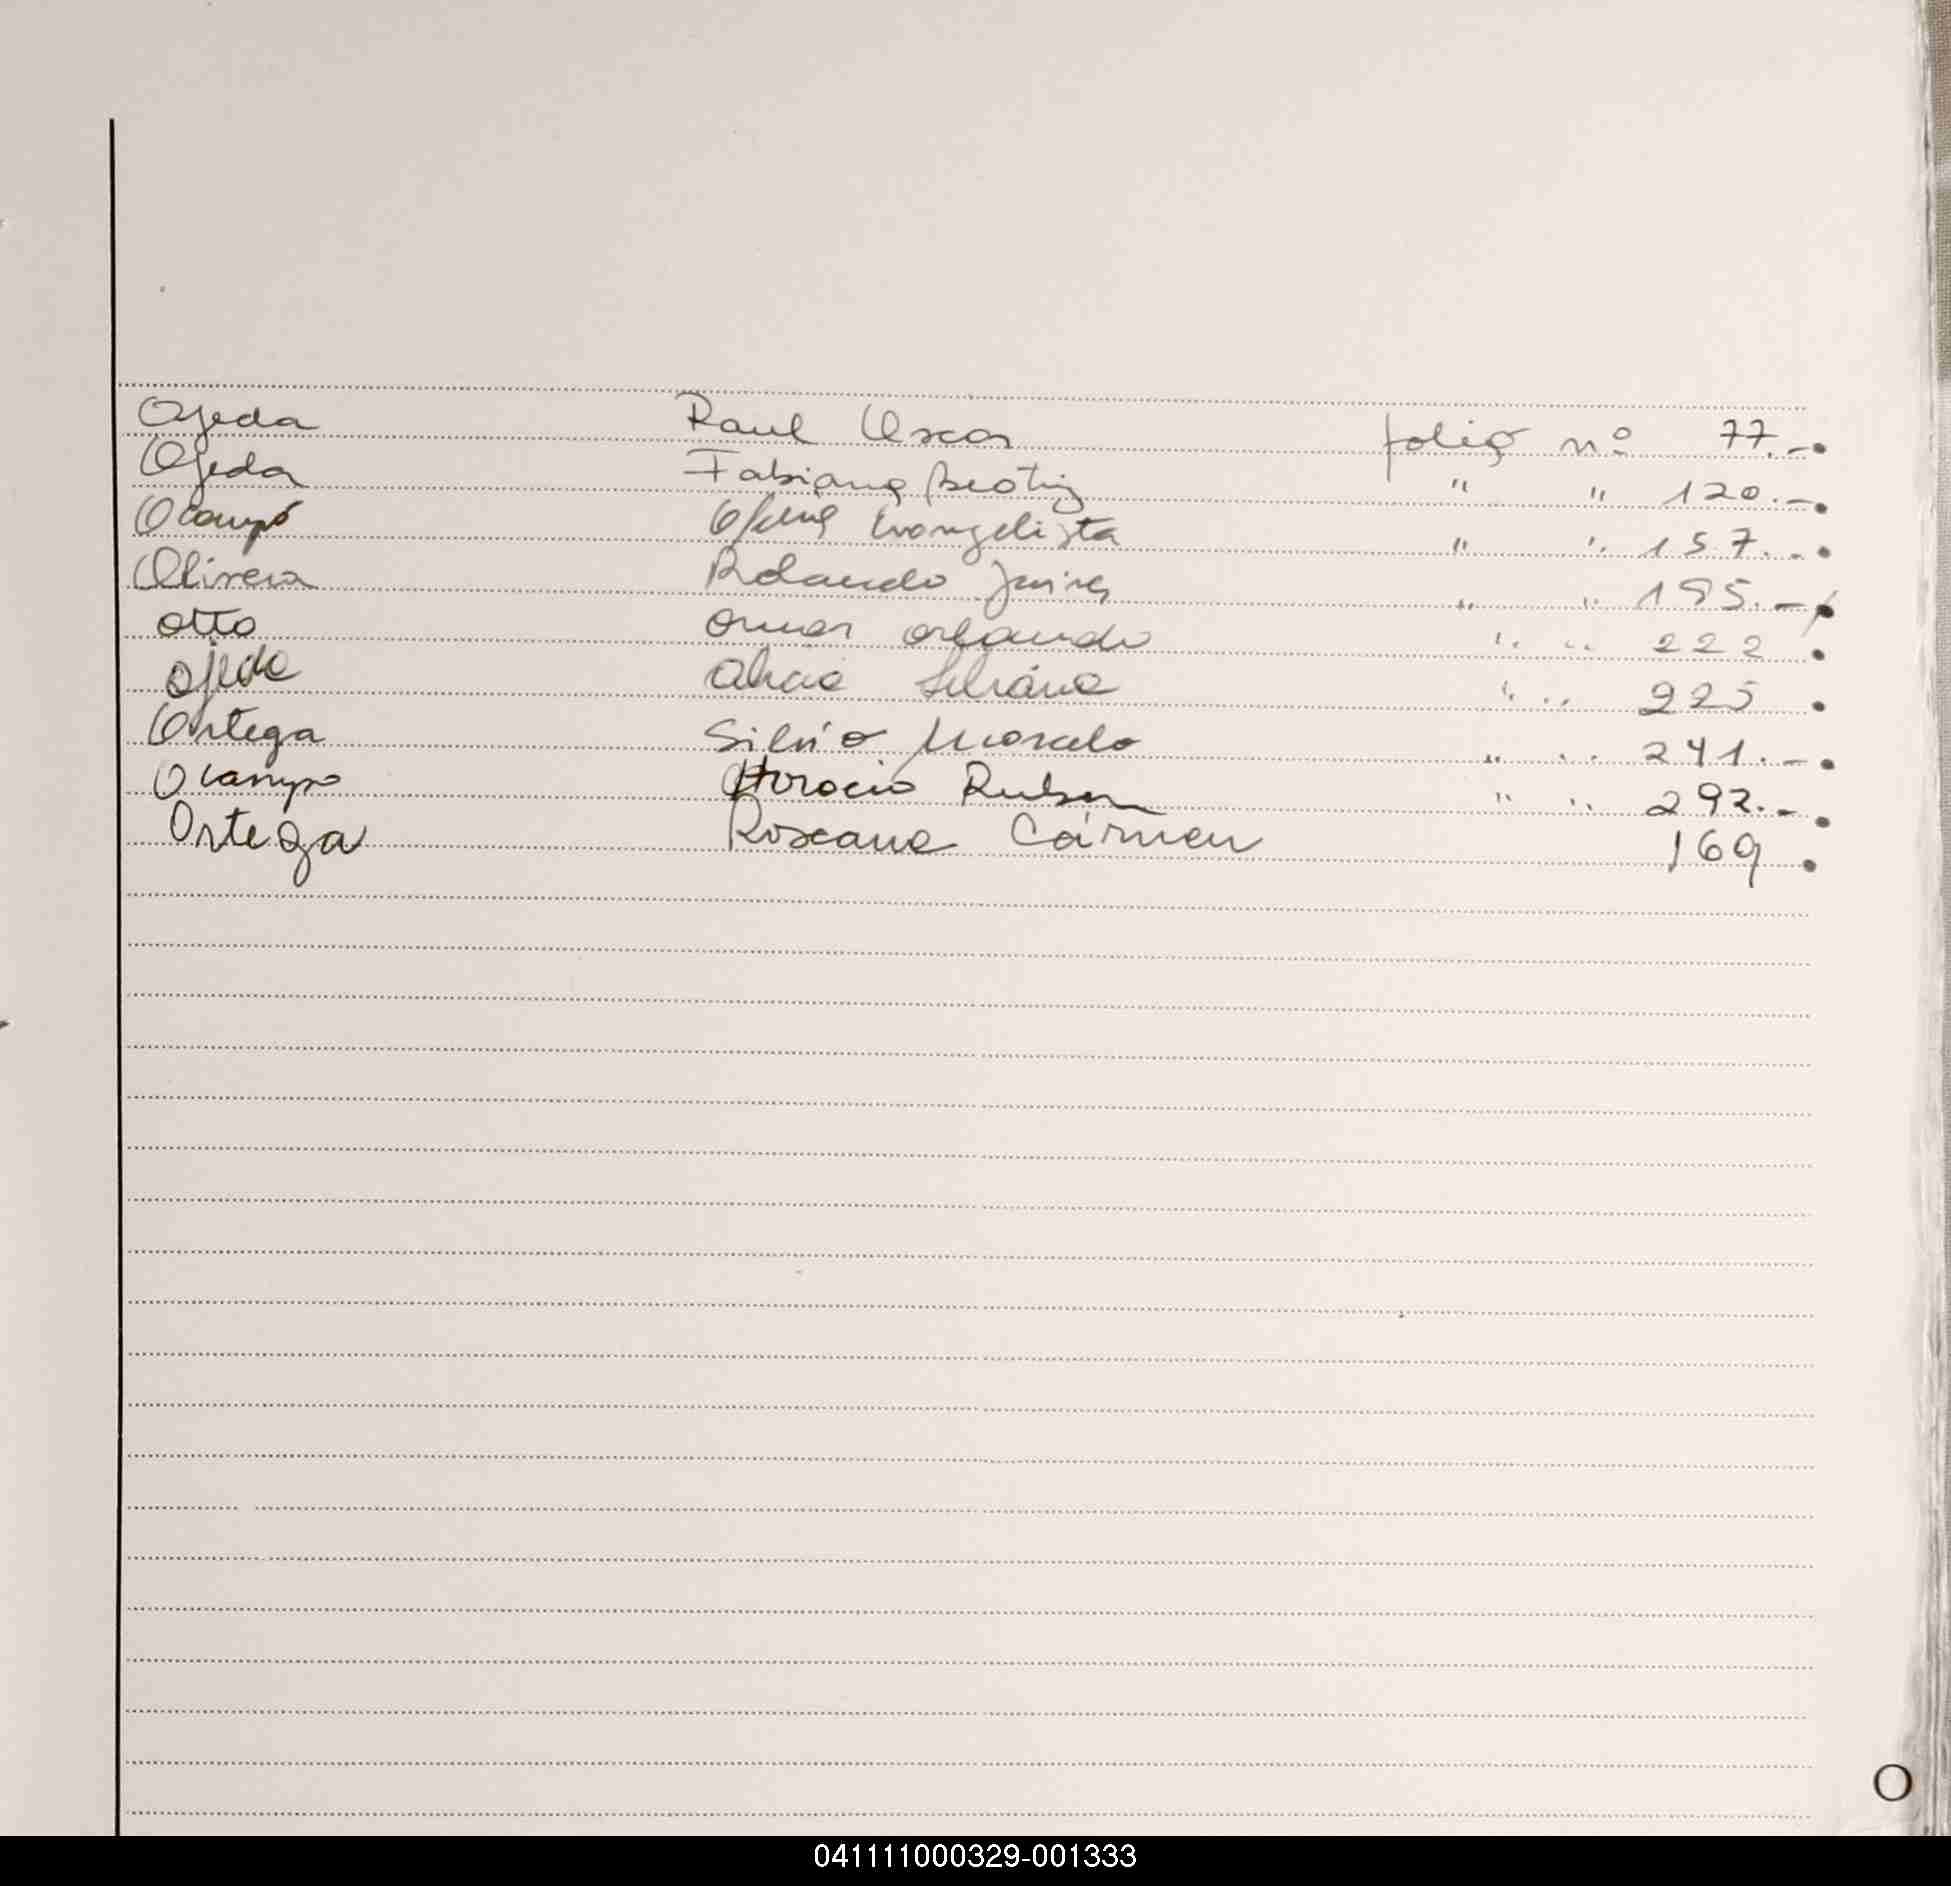 Ojeda Raul Oscar folio nº 77.-
Ojeda Fabiana Beatriz " " 120.-
Ocampo Evangelista " " 157.-
Olivera Rolando " " 195.-
Otto Omar Orlando " " 222
Ojeda Alicia " " 225
Ortega Silvio Marcelo " " 241.-
Ocampo Horacio Ruben " " 292.-
Ortega Roxana Cármen 169
O
041111000329-001333